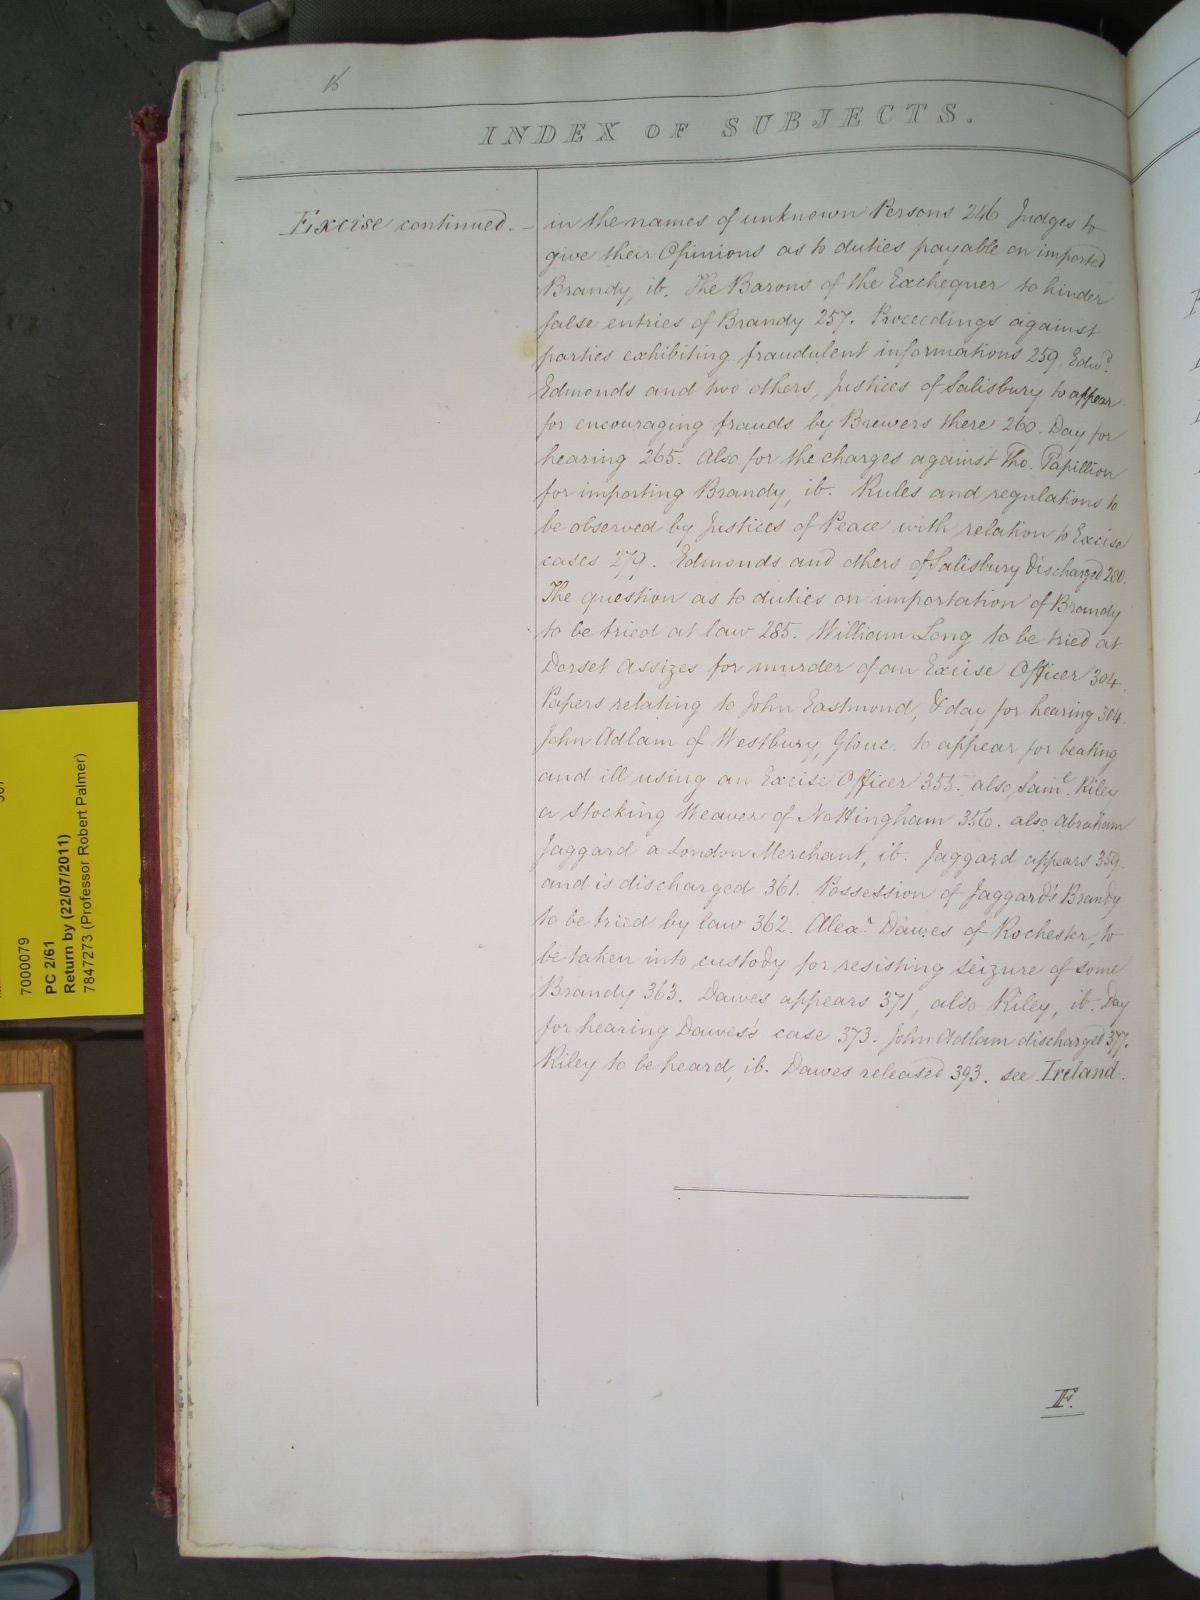 INDEX OF SUBJECTS.
Excise continued. - in the names of unknown Persons 246 Judges to
give their Opinions as to duties payable on imported
Brandy, ib. The Barons of the Exchequer to hinder
false entries of Brandy 257. Proceedings against
parties exhibiting fraudulent informations 259 Edwd.
Edmonds and two others, Justices of Salisbury to appear
for encouraging frauds by Brewers there 260. Day for
hearing 265. Also for the charges against Tho. Papillion
for importing Brandy, ib. Rules and regulations to
be observed by Justices of Peace with relation to Excise
cases 279. Edmonds and others of Salisbury discharged 280.
The question as to duties on importation of Brandy
to be tried at law 285. William Long to be tried at
Dorset Assizes for murder of an Excise Officer 304.
Papers relating to John Eastmond, & day for hearing 304.
John Adlam of Westbury, Glouc. to appear for beating
and ill using an Excise Officer 355. also Saml. Riley
a Stocking Weaver of Nottingham 356. also Abraham
Jaggard a London Merchant, ib. Jaggard appears 359.
and is discharged 361. Possession of Jaggard's Brandy
to be tried by law 362. Alexr. Dawes of Rochester, to
be taken into custody for resisting seizure of some
Brandy 363. Dawes appears 371, also Riley, ib. Day
for hearing Dawes's case 373. John Adlam discharged 377.
Riley to be heard, ib. Dawes released 393. see Ireland.
F.
7000079
PC 2/61
Return by (22/07/2011)
7847273 (Professor Robert Palmer)